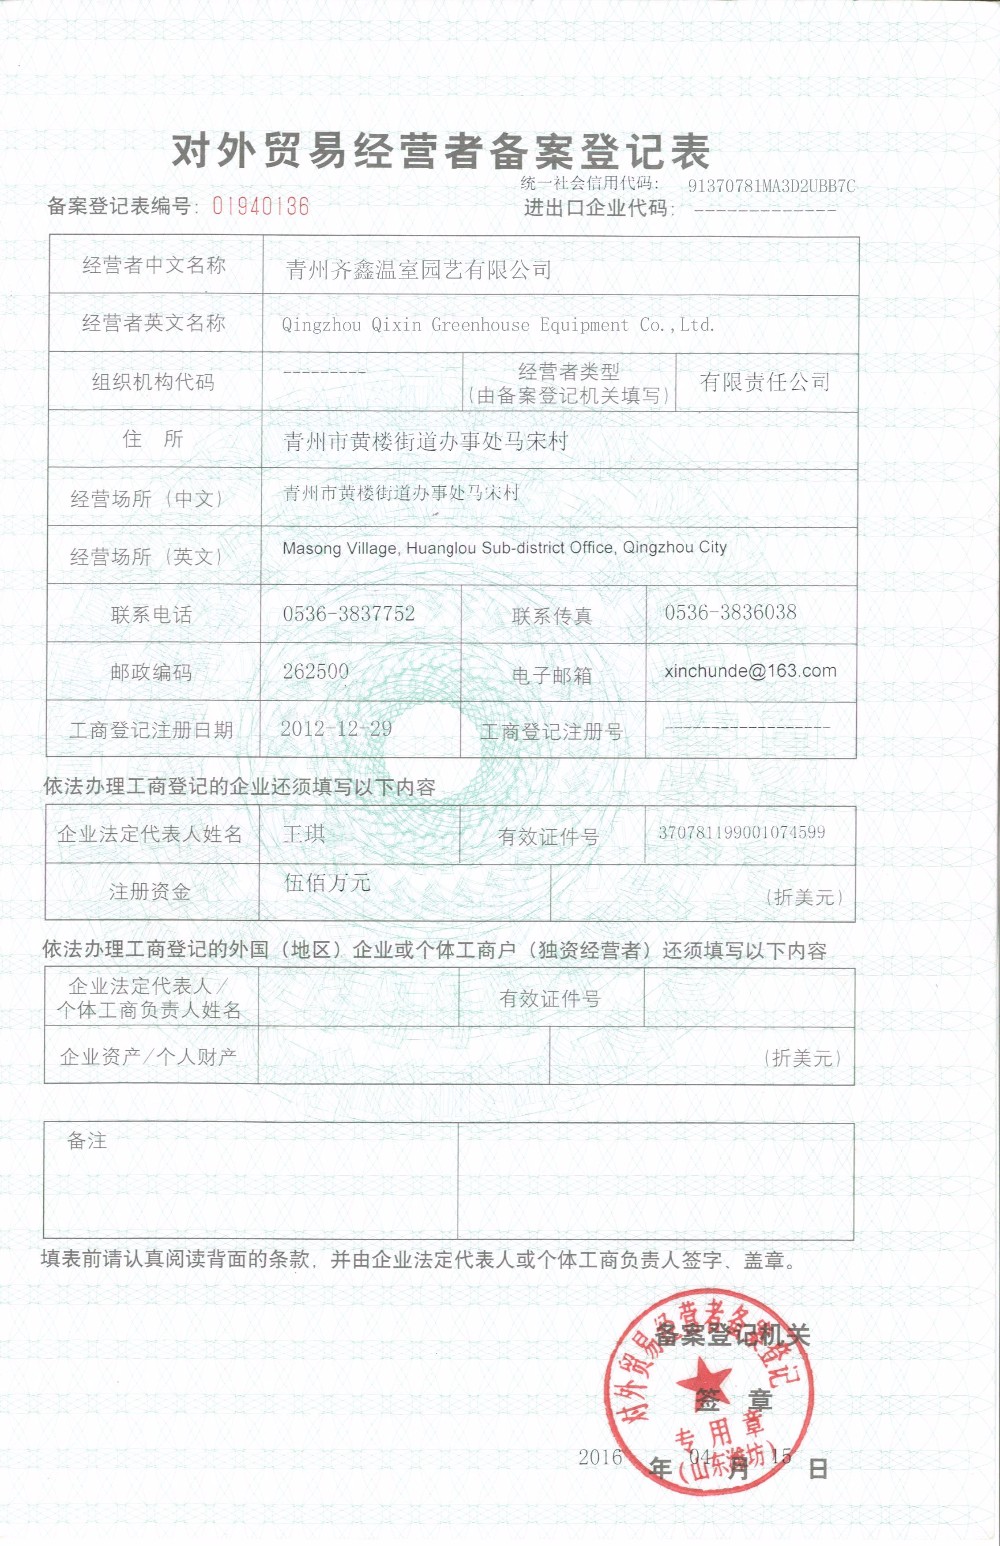 对外贸易经营者备案登记表
统一社会信用代码: 91370781MA3D2UBB7C
备案登记表编号: 01940136
进出口企业代码: -------------
经营者中文名称 青州齐鑫温室园艺有限公司
经营者英文名称 Qingzhou Qixin Greenhouse Equipment Co.,Ltd.
组织机构代码 --------- 经营者类型 有限责任公司
(由备案登记机关填写)
住 所 青州市黄楼街道办事处马宋村
经营场所(中文) 青州市黄楼街道办事处马宋村
经营场所(英文) Masong Village, Huanglou Sub-district Office, Qingzhou City
联系电话 0536-3837752 联系传真 0536-3836038
邮政编码 262500 电子邮箱 xinchunde@163.com
工商登记注册日期 2012-12-29 工商登记注册号 ------------------
依法办理工商登记的企业还须填写以下内容
企业法定代表人姓名 王琪 有效证件号 370781199001074599
注册资金 伍佰万元 (折美元)
依法办理工商登记的外国(地区)企业或个体工商户(独资经营者)还须填写以下内容
企业法定代表人/
个体工商负责人姓名 有效证件号
企业资产/个人财产 (折美元)
备注
填表前请认真阅读背面的条款,并由企业法定代表人或个体工商负责人签字、盖章。
对外贸易经营者备案登记
备案登记机关
签 章
专用章
(山东潍坊)
2016 年 04 月 15 日